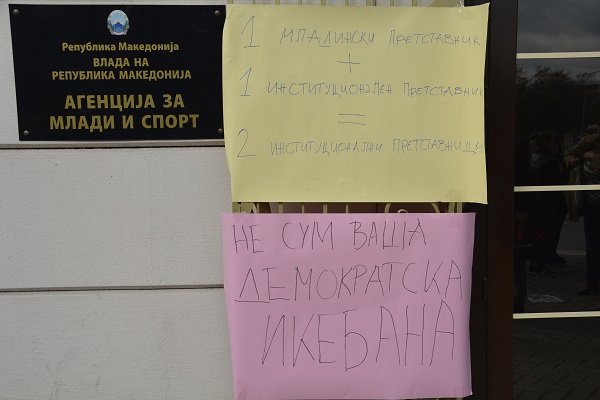 Република Македонија
ВЛАДА НА
РЕПУБЛИКА МАКЕДОНИЈА
АГЕНЦИЈА ЗА
МЛАДИ И СПОРТ
1 МЛАДИНСКИ ПРЕТСТАВНИК
+
1 ИНСТИТУЦИОНАЛЕН ПРЕТСТАВНИК
=
2 ИНСТИТУЦИОНАЛНИ ПРЕТСТАВНИЦИ
НЕ СУМ ВАША
ДЕМОКРАТСКА
ИКЕБАНА